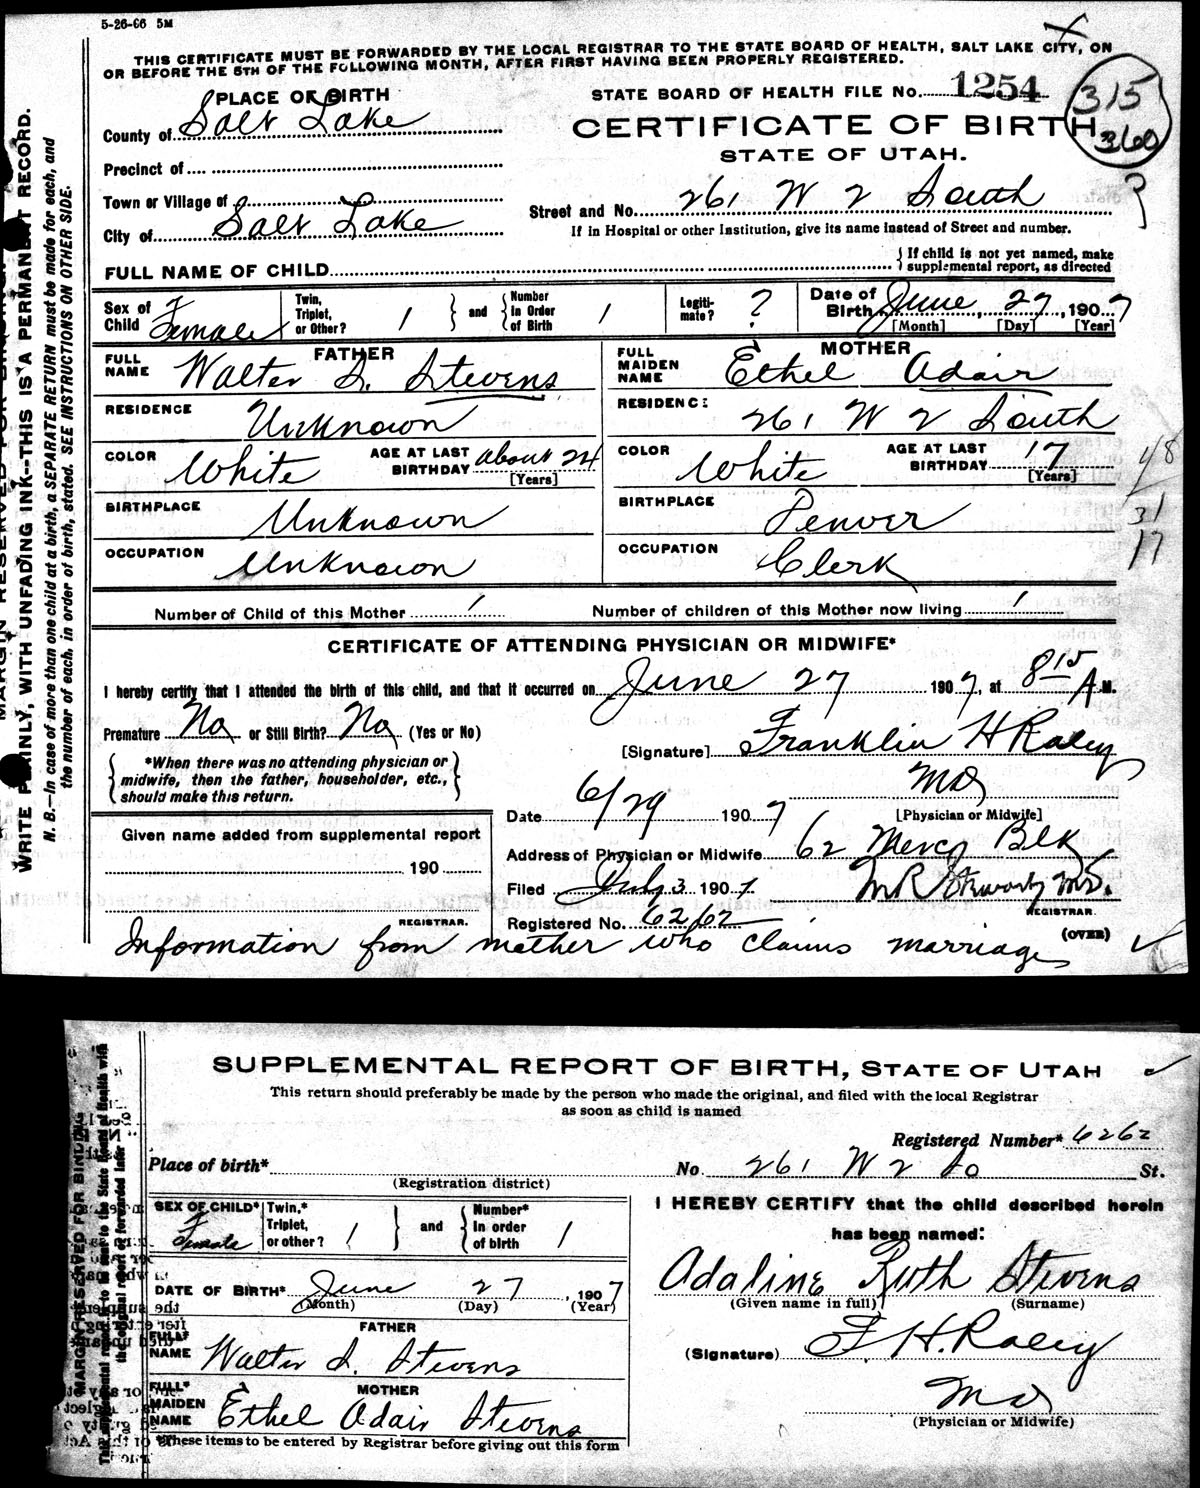 5-26-06 5M
THIS CERTIFICATE MUST BE FORWARDED BY THE LOCAL REGISTRAR TO THE STATE BOARD OF HEALTH, SALT LAKE CITY, ON
OR BEFORE THE 5TH OF THE FOLLOWING MONTH, AFTER FIRST HAVING BEEN PROPERLY REGISTERED.
PLACE OF BIRTH
STATE BOARD OF HEALTH FILE No. 1254
315
360
?
County of Salt Lake
CERTIFICATE OF BIRTH
STATE OF UTAH.
Precinct of
Town or Village of
Street and No. 261 W 2 South
City of Salt Lake
If in Hospital or other Institution, give its name instead of Street and number.
FULL NAME OF CHILD
If child is not yet named, make
supplemental report, as directed
Sex of Child Female
Twin, Triplet, or Other? 1
and Number in Order of Birth 1
Legitimate? ?
Date of Birth June 27, 1907
[Month] [Day] [Year]
FATHER
FULL NAME Walter S. Stevens
MOTHER
FULL MAIDEN NAME Ethel Adair
RESIDENCE Unknown
RESIDENCE 261 W 2 South
COLOR White AGE AT LAST BIRTHDAY about 24 [Years]
COLOR White AGE AT LAST BIRTHDAY 17 [Years]
48
31
17
BIRTHPLACE Unknown
BIRTHPLACE Denver
OCCUPATION Unknown
OCCUPATION Clerk
Number of Child of this Mother 1 Number of children of this Mother now living 1
CERTIFICATE OF ATTENDING PHYSICIAN OR MIDWIFE*
I hereby certify that I attended the birth of this child, and that it occurred on June 27 1907, at 815 A.M.
Premature No or Still Birth? No (Yes or No)
[Signature] Franklin H Raley
MD
[Physician or Midwife]
*When there was no attending physician or
midwife, then the father, householder, etc.,
should make this return.
Date 6/29 1907
Given name added from supplemental report
190
REGISTRAR.
Address of Physician or Midwife 62 Merc Blk
Filed July 3 1907
REGISTRAR.
Registered No. 6262
(OVER)
Information from mother who claims marriage
WRITE PLAINLY, WITH UNFADING INK--THIS IS A PERMANENT RECORD.
N. B.—In case of more than one child at a birth, a SEPARATE RETURN must be made for each, and
the number of each, in order of birth, stated. SEE INSTRUCTIONS ON OTHER SIDE.
SUPPLEMENTAL REPORT OF BIRTH, STATE OF UTAH
This return should preferably be made by the person who made the original, and filed with the local Registrar
as soon as child is named
Registered Number* 6262
Place of birth* No. 261 W 2 So St.
(Registration district)
SEX OF CHILD* Female
Twin,* Triplet, or other? 1
and Number* In order of birth 1
DATE OF BIRTH* June 27, 1907
(Month) (Day) (Year)
FATHER
FULL* NAME Walter S. Stevens
MOTHER
FULL* MAIDEN NAME Ethel Adair Stevens
*These items to be entered by Registrar before giving out this form
I HEREBY CERTIFY that the child described herein
has been named:
Adaline Ruth Stevens
(Given name in full) (Surname)
(Signature) F H. Raley
MD
(Physician or Midwife)
MARGIN RESERVED FOR BINDING